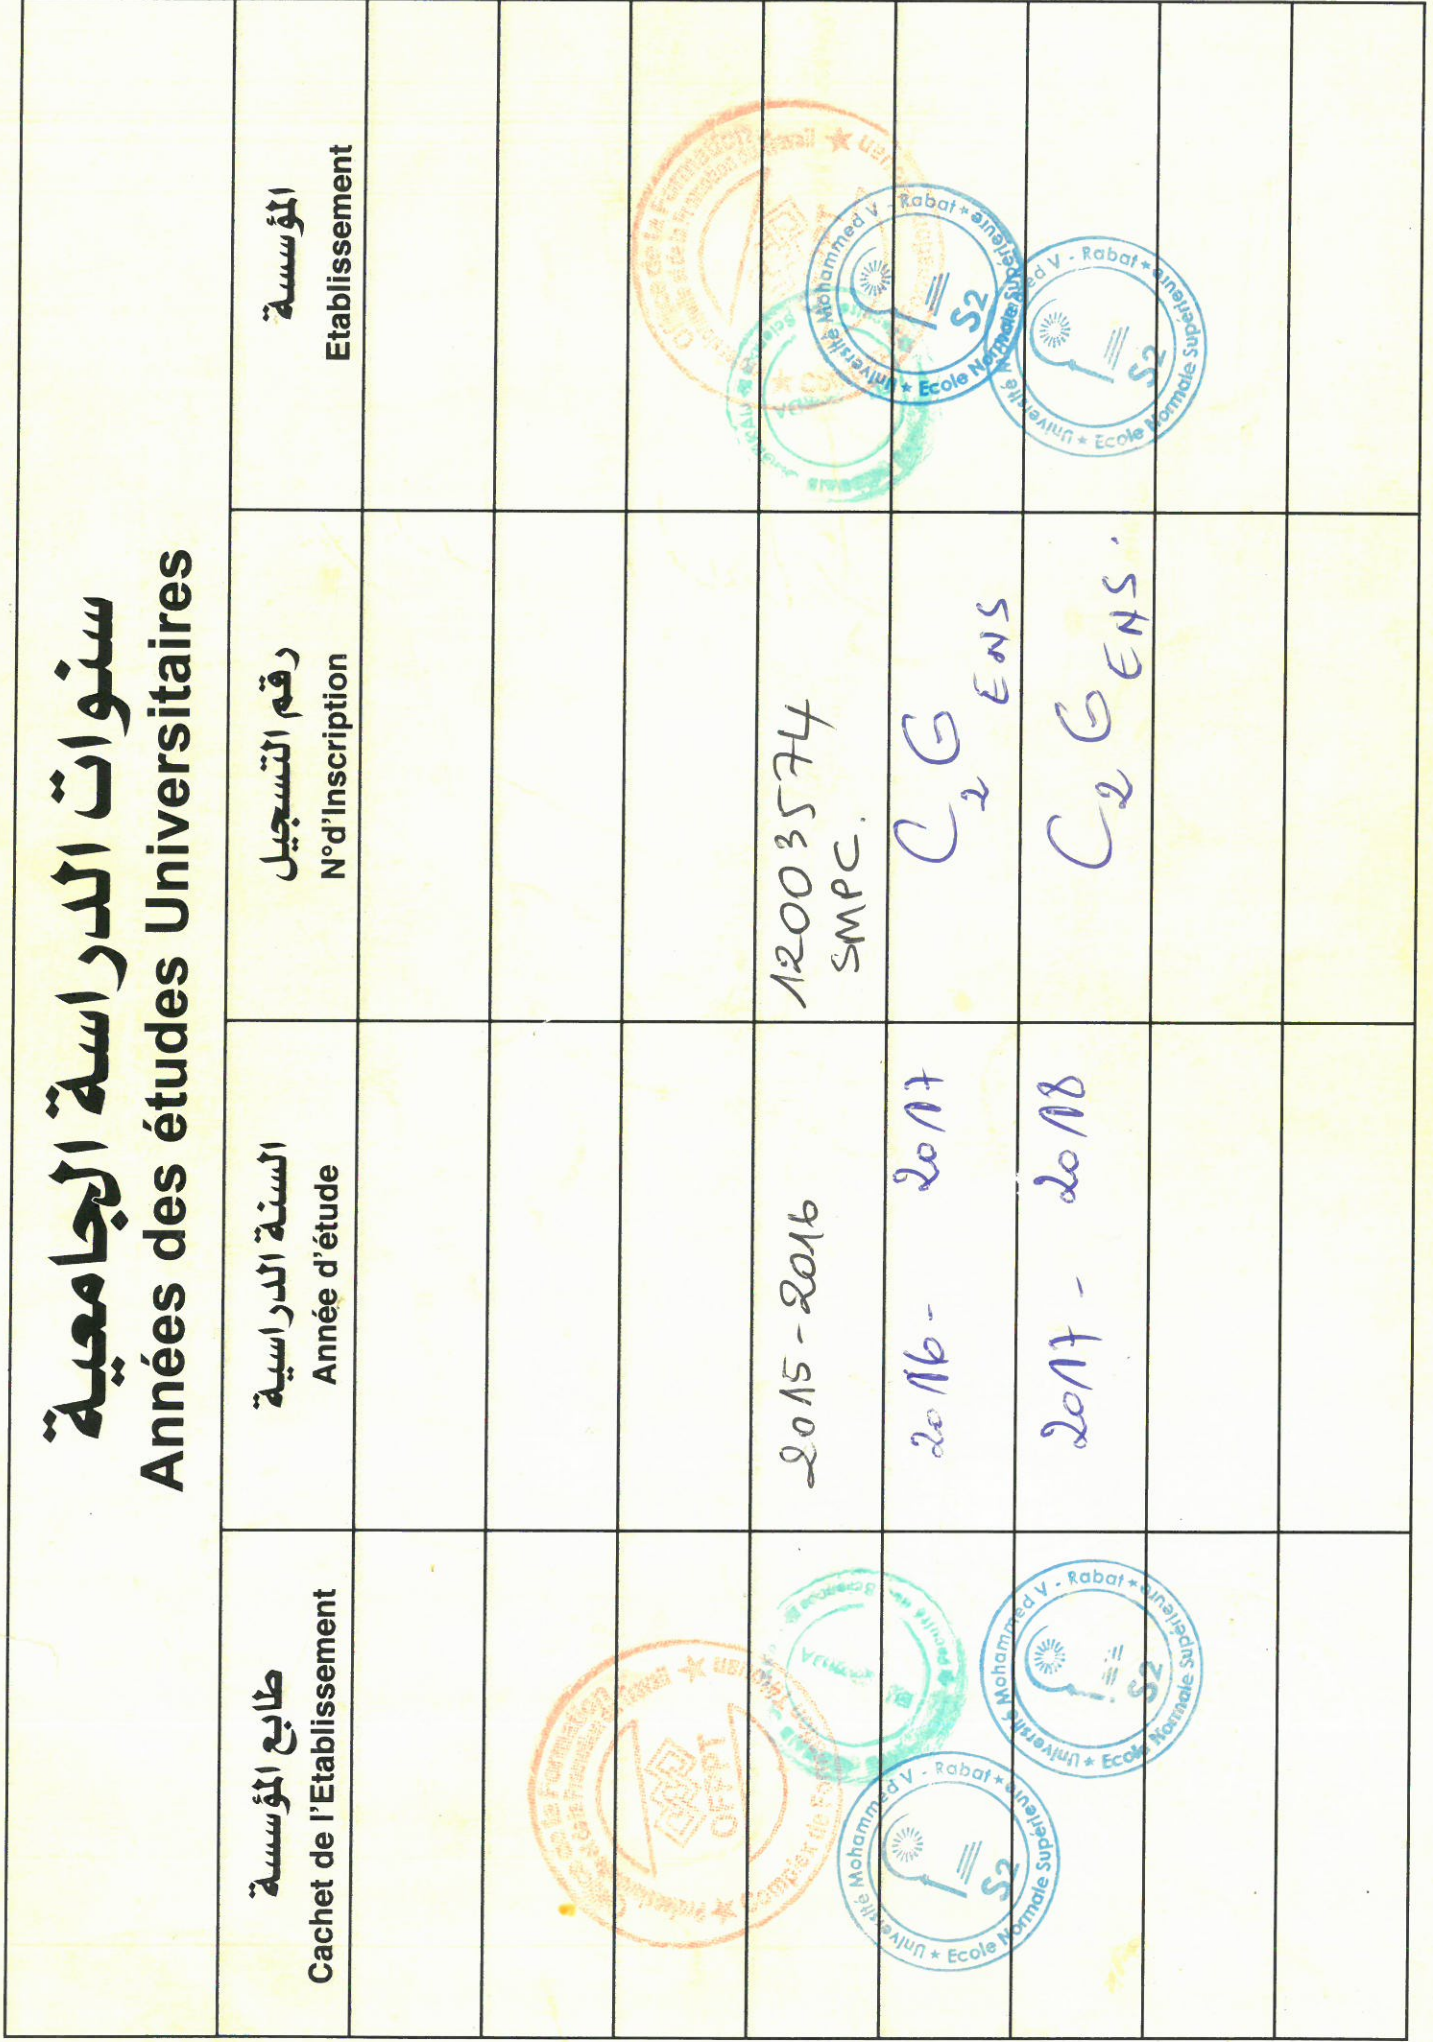 سنوات الدراسة الجامعية
Années des études Universitaires
طابع المؤسسة
Cachet de l'Etablissement
السنة الدراسية
Année d'étude
رقم التسجيل
N°d'Inscription
المؤسسة
Etablissement
2015-2016
12003574
SMPC.
2016- 2017
C2G
ENS
2017- 2018
C2G
ENS.
Office de la Formation
OFPPT
Complexe de
Université Mohammed V - Rabat * Ecole Normale Supérieure
S2
Université Mohammed V - Rabat * Ecole Normale Supérieure
S2
Office de la Formation
Université Mohammed V - Rabat * Ecole Normale Supérieure
S2
Université Mohammed V - Rabat * Ecole Normale Supérieure
S2